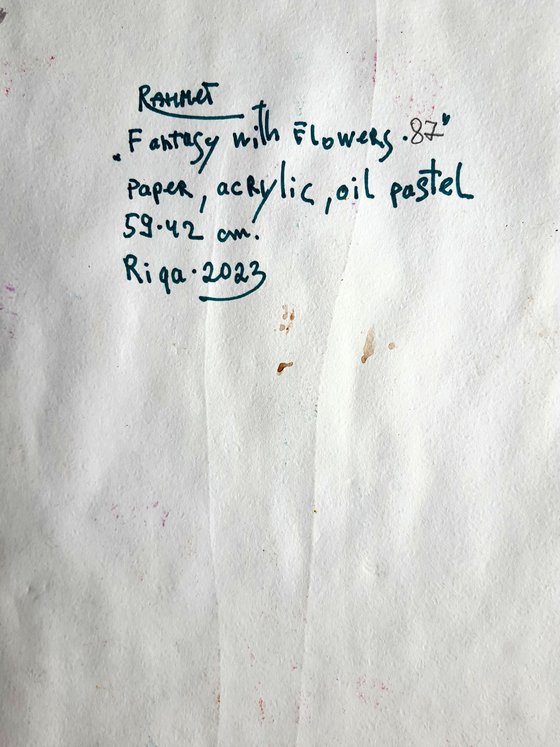 Rahmet
"Fantasy with Flowers. 87"
paper, acrylic, oil pastel
59.42 cm.
Riga. 2023